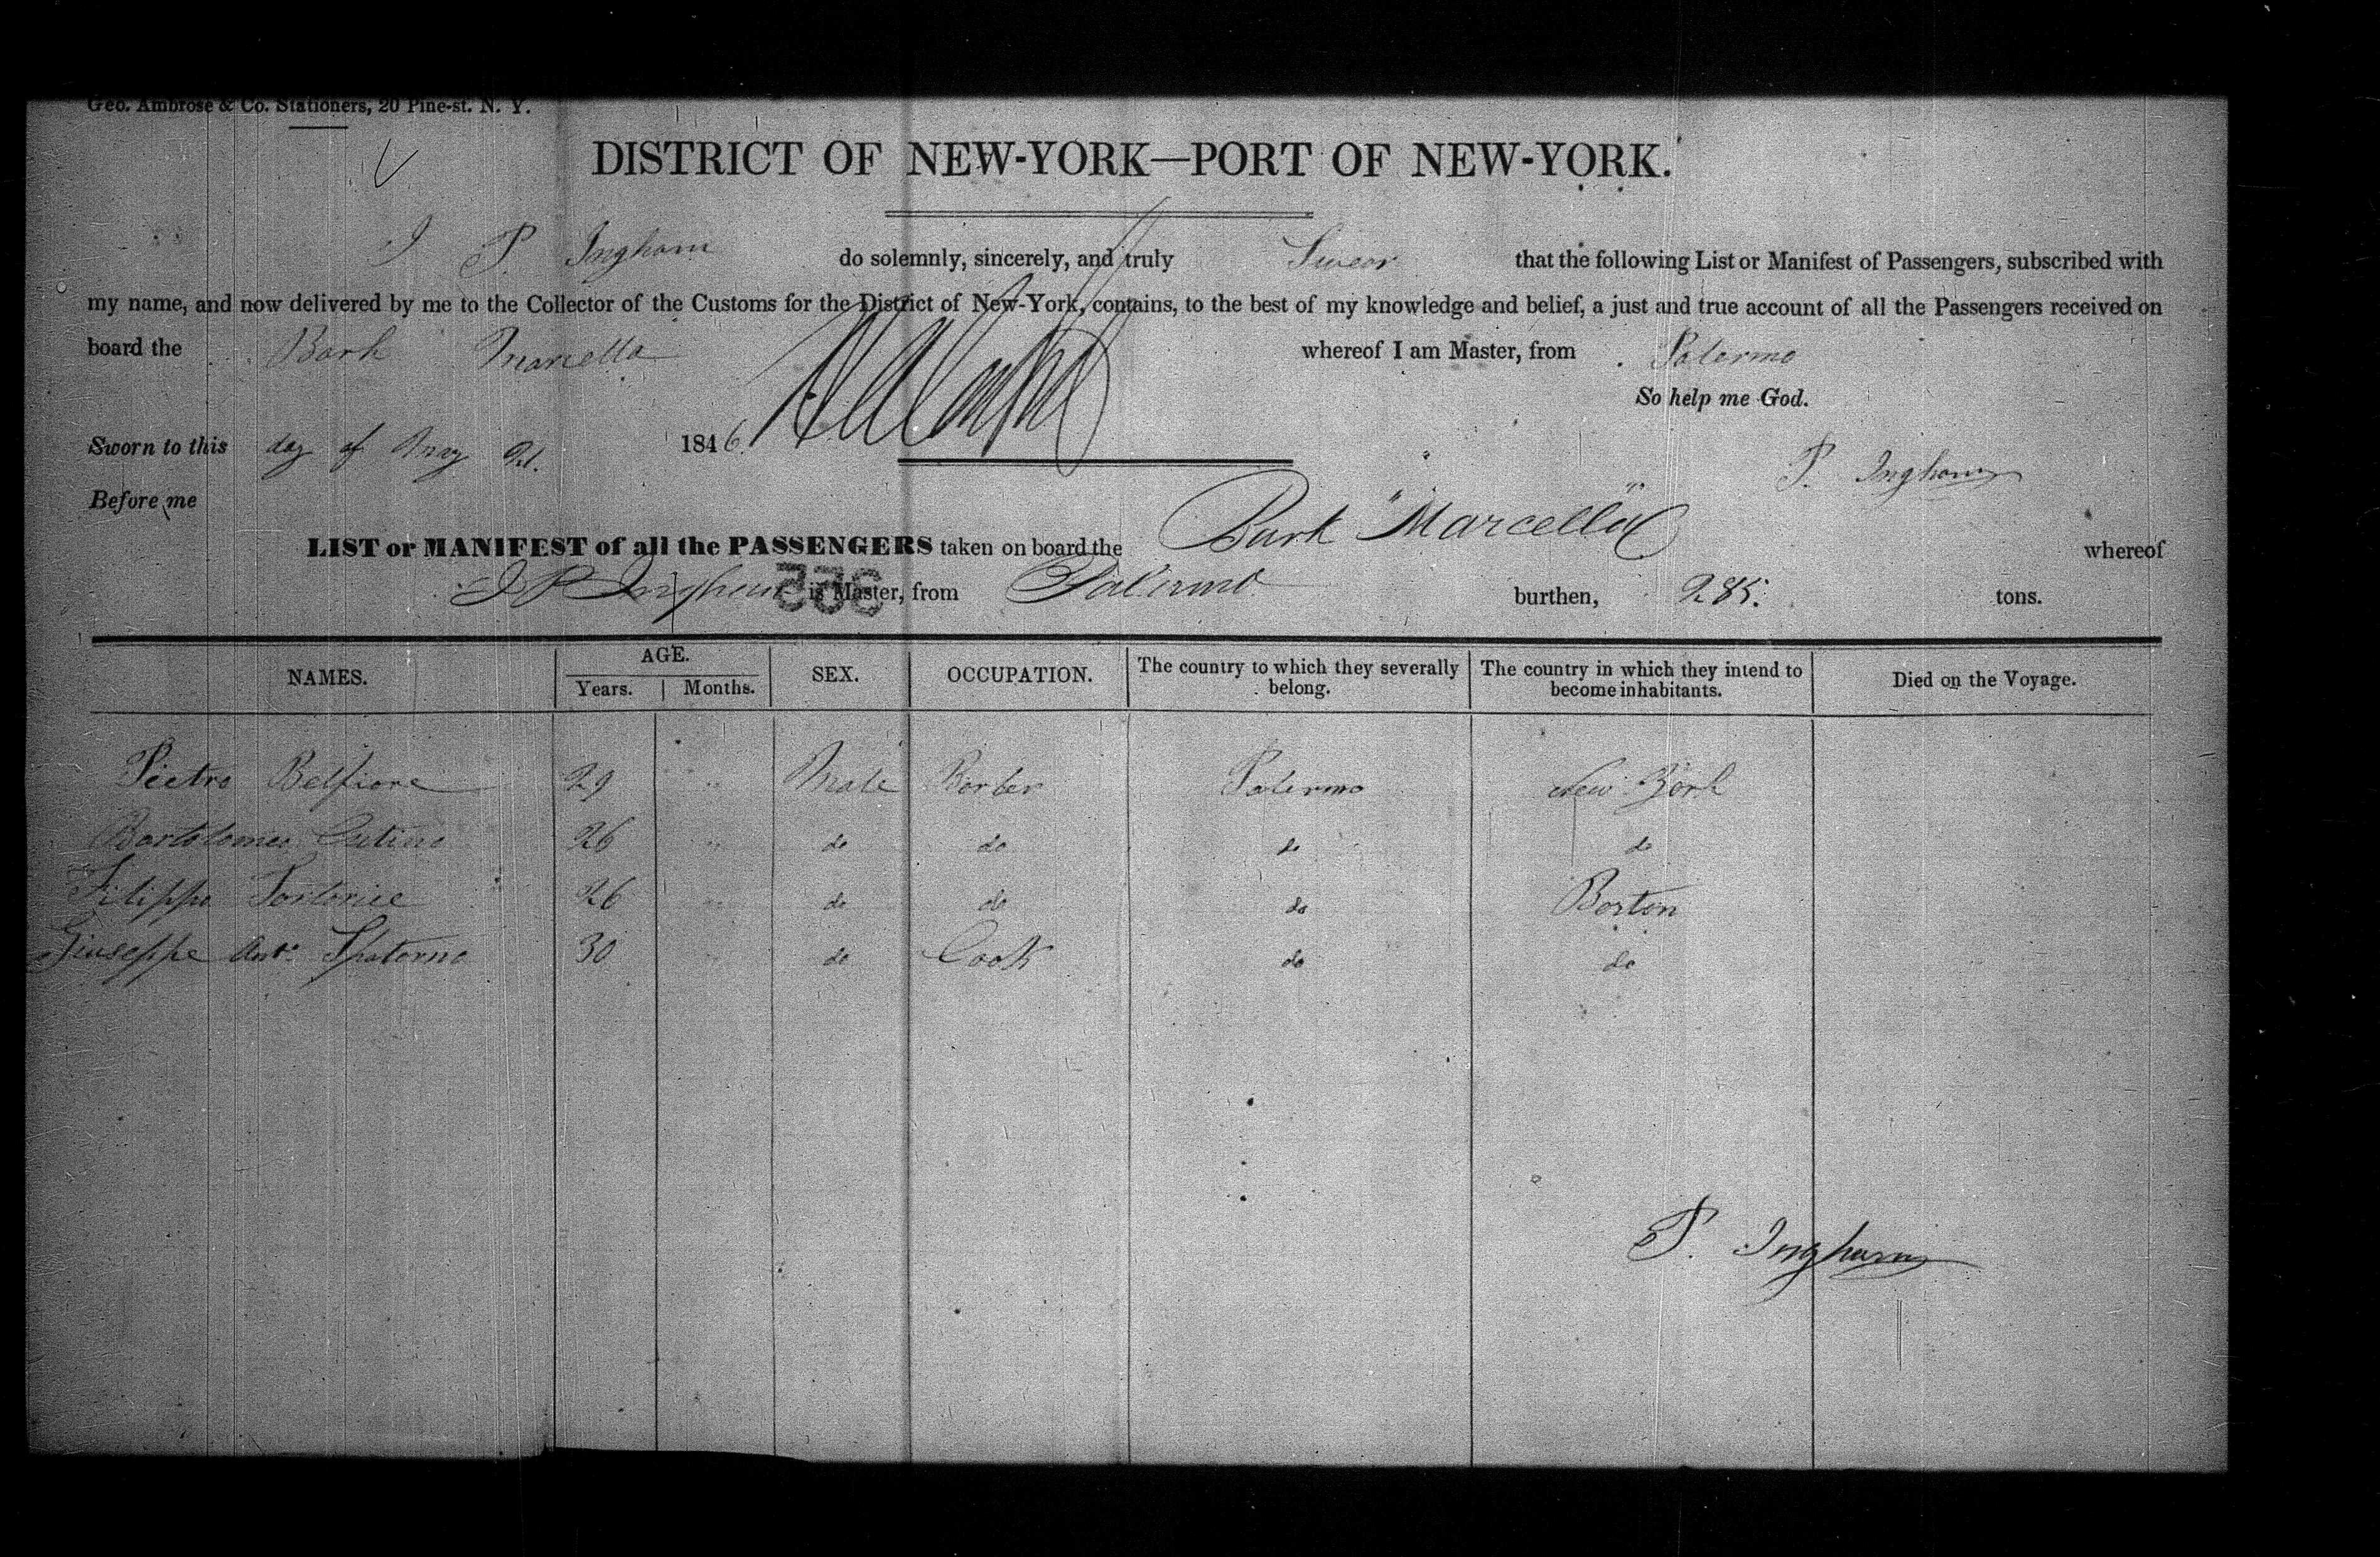 Geo. Ambrose & Co. Stationers, 20 Pine-st. N. Y.
DISTRICT OF NEW-YORK—PORT OF NEW-YORK.
I P. Ingham do solemnly, sincerely, and truly Swear that the following List or Manifest of Passengers, subscribed with
my name, and now delivered by me to the Collector of the Customs for the District of New-York, contains, to the best of my knowledge and belief, a just and true account of all the Passengers received on
board the Bark Marcella whereof I am Master, from Palermo
So help me God.
Sworn to this day of May 21. 1846
P. Ingham
Before me
LIST or MANIFEST of all the PASSENGERS taken on board the Bark "Marcella" whereof
P Ingham is Master, from Palermo burthen, 285. tons.
336
NAMES. AGE. Years. Months. SEX. OCCUPATION. The country to which they severally belong. The country in which they intend to become inhabitants. Died on the Voyage.
Pietro Belfiore 29 " Male Barber Palermo New York
Bartolomeo Cutino 26 " do do do do
Filippo 26 " do do do Boston
Giuseppe Ant.º Spatorno 30 " do Cook do do
P. Ingham